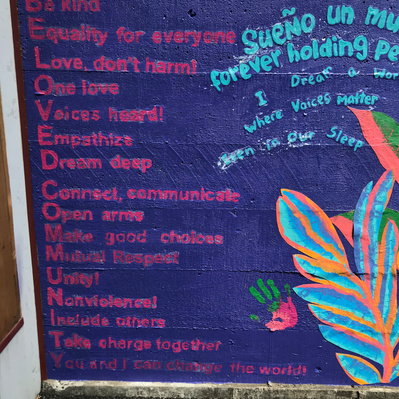 Be kind
Equality for everyone
Love, don't harm!
One love
Voices heard!
Empathize
Dream deep
Connect, communicate
Open arms
Make good choices
Mutual Respect
Unity!
Nonviolence!
Include others
Take charge together
You and I can change the world!
Sueño un mu
forever holding pe
I Dream a wor
where Voices matter
Even in Our Sleep